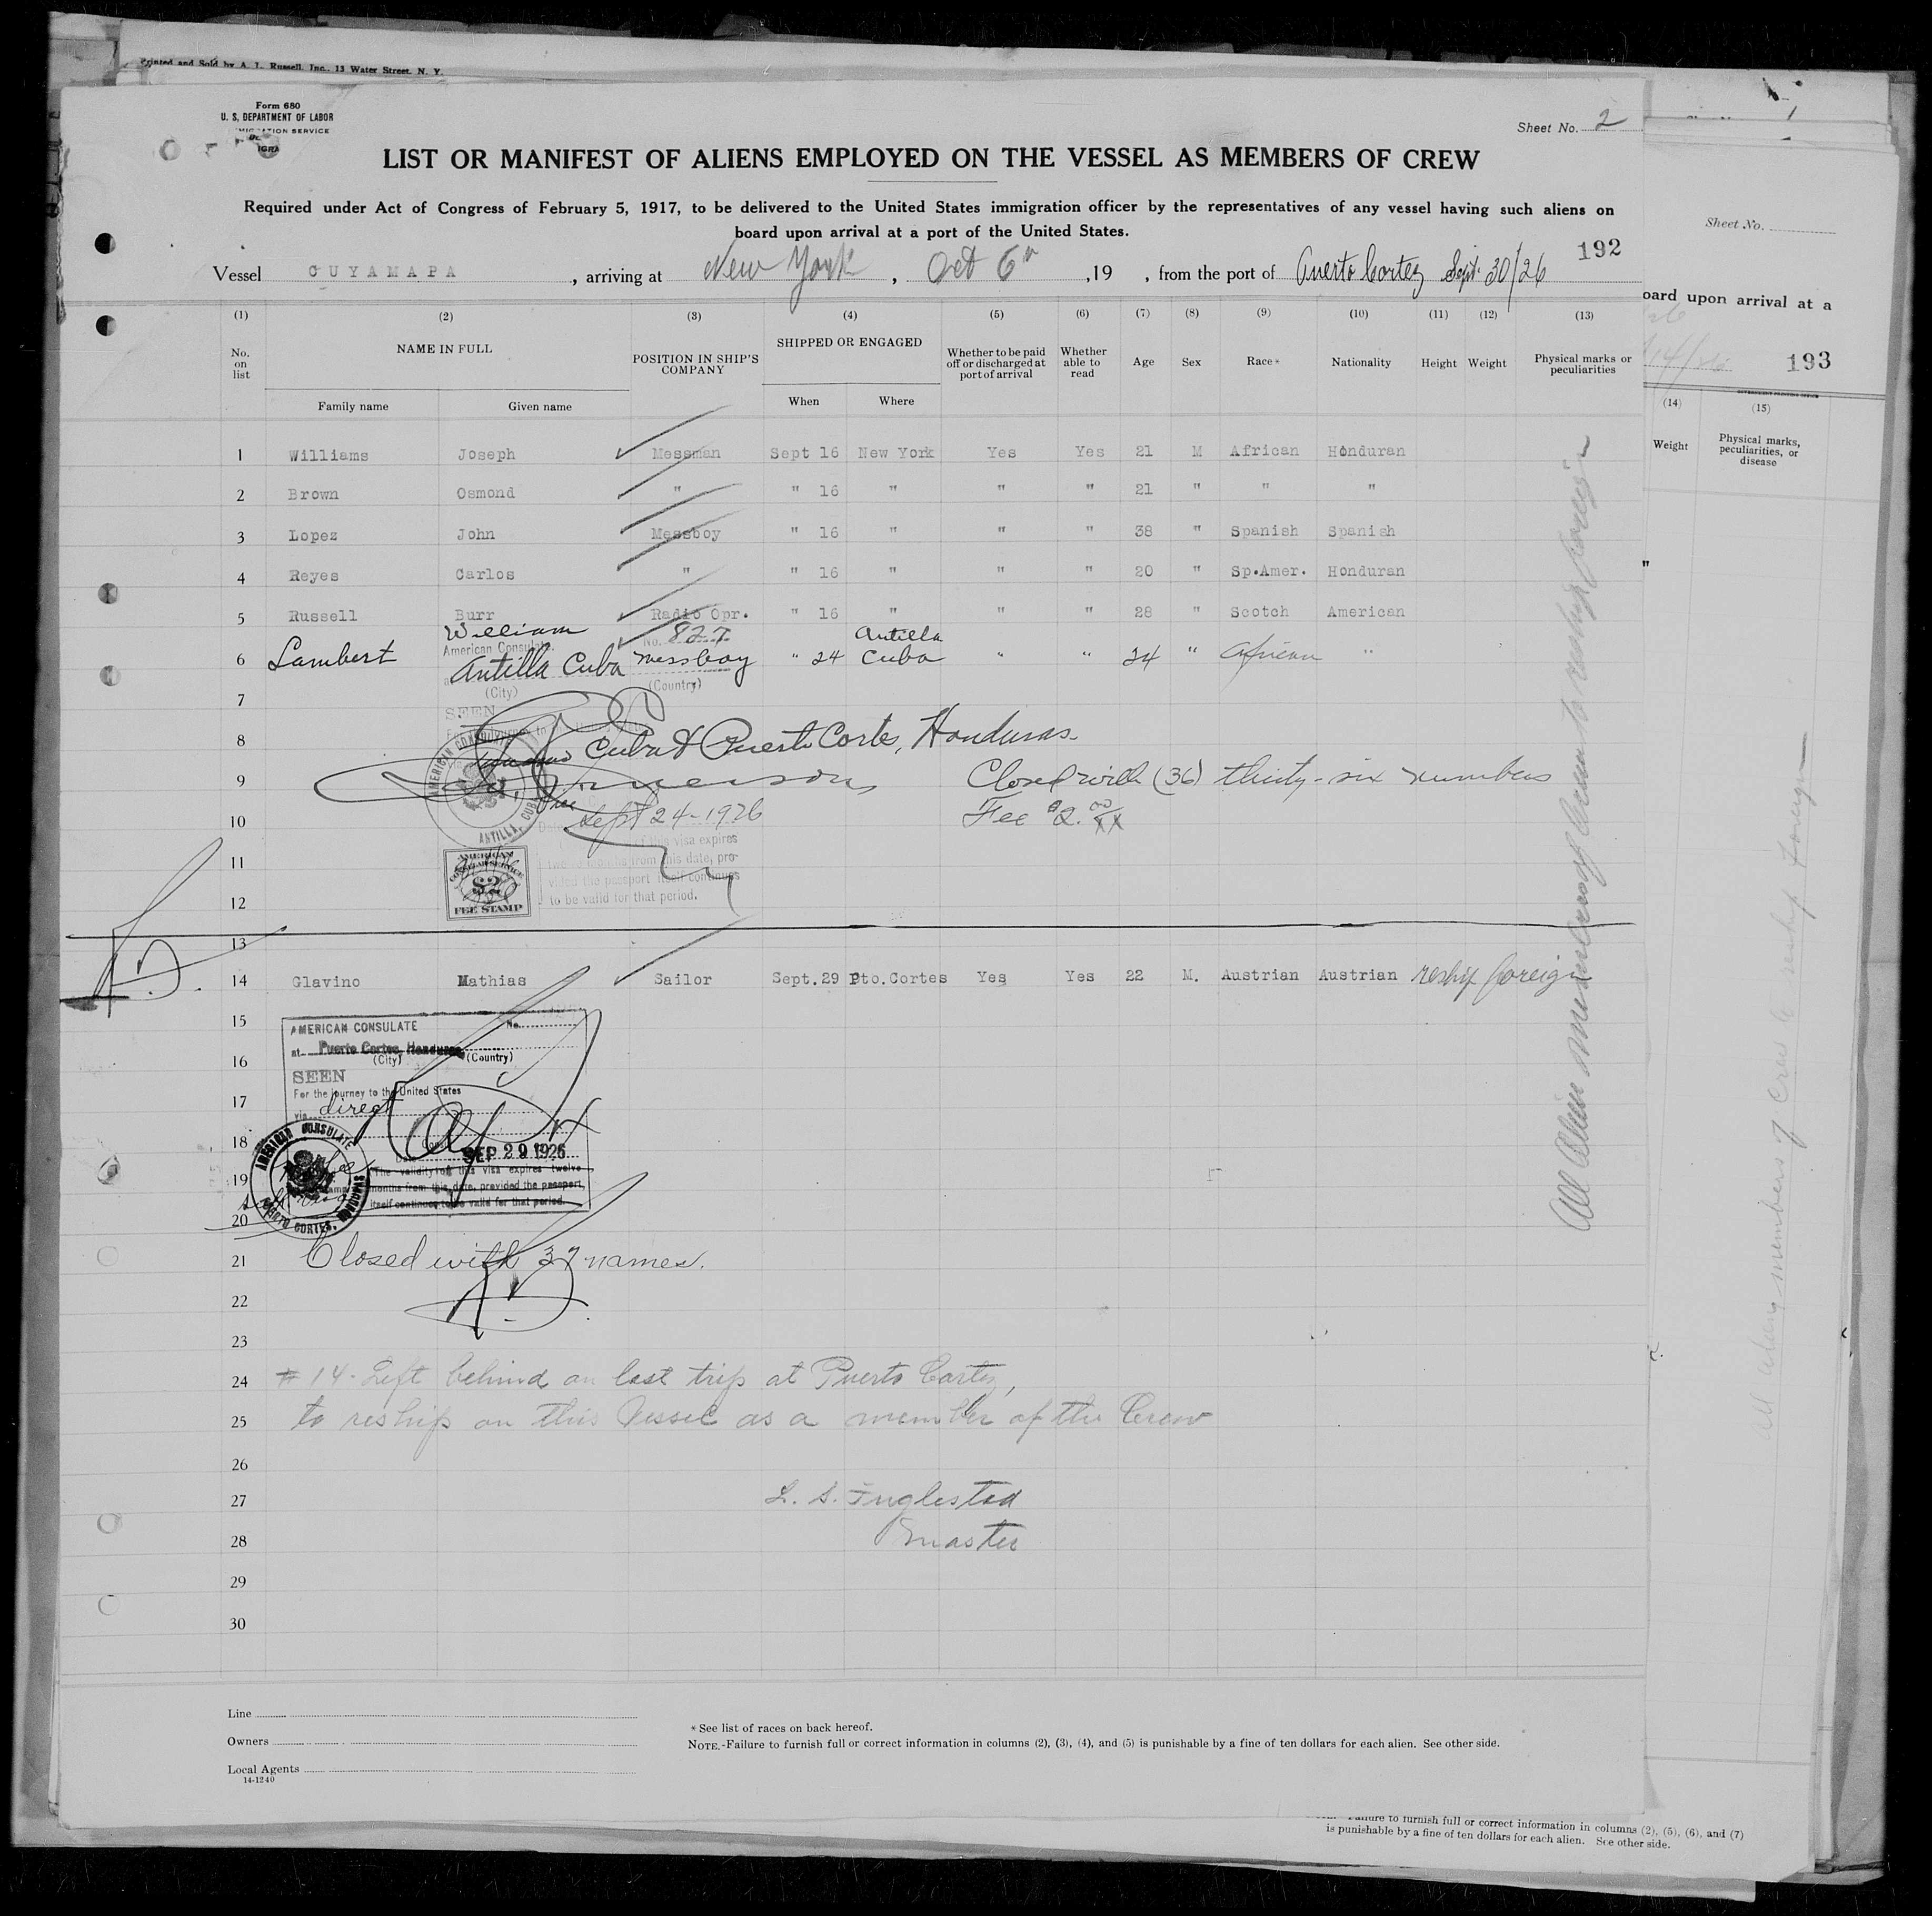 Printed and Sold by A. L. Russell, Inc., 13 Water Street, N. Y.
Form 680
U. S. DEPARTMENT OF LABOR
IMMIGRATION SERVICE
Sheet No. 2
LIST OR MANIFEST OF ALIENS EMPLOYED ON THE VESSEL AS MEMBERS OF CREW
Required under Act of Congress of February 5, 1917, to be delivered to the United States immigration officer by the representatives of any vessel having such aliens on
board upon arrival at a port of the United States.
192
Vessel CUYAMAPA, arriving at New York, Oct 6th, 19 , from the port of Puerto Cortez Sept. 30/26
(1) (2) (3) (4) (5) (6) (7) (8) (9) (10) (11) (12) (13)
No. on list NAME IN FULL POSITION IN SHIP'S COMPANY SHIPPED OR ENGAGED Whether to be paid off or discharged at port of arrival Whether able to read Age Sex Race* Nationality Height Weight Physical marks or peculiarities
Family name Given name When Where
1 Williams Joseph Messman Sept 16 New York Yes Yes 21 M African Honduran
2 Brown Osmond " " 16 " " " 21 " " "
3 Lopez John Messboy " 16 " " " 38 " Spanish Spanish
4 Reyes Carlos " " 16 " " " 20 " Sp.Amer. Honduran
5 Russell Burr Radio Opr. " 16 " " " 28 " Scotch American
6 Lambert William Messboy " 24 Antilla Cuba " " 24 " African "
American Consulate. No. 827
Antilla Cuba
(City) (Country)
7
SEEN
8
Cuba & Puerto Cortes, Honduras.
9
Closed with (36) thirty-six numbers
10
Sept 24-1926
Fee $2.00
AMERICAN CONSULATE ANTILLA, CUBA
11
this visa expires
from this date, pro-
vided the passport itself continues
to be valid for that period.
12
AMERICAN CONSULAR SERVICE
$2
FEE STAMP
13
14 Glavino Mathias Sailor Sept.29 Pto.Cortes Yes Yes 22 M. Austrian Austrian reship foreign
15
AMERICAN CONSULATE No.
at Puerto Cortes, Honduras
(City) (Country)
16
SEEN
For the journey to the United States
17
via direct
18
Date SEP 29 1926
The validity of this visa expires twelve
19
months from this date, provided the passport
itself continues to be valid for that period.
AMERICAN CONSULATE PUERTO CORTES, HONDURAS
20
21 Closed with 37 names.
22
23
24 # 14. Left behind on last trip at Puerto Cortez,
25 to reship on this Vessel as a member of the Crew
26
27 L. S. Inglestad
28 Master
29
30
All Alien members of crew to reship foreign
Line
Owners
Local Agents
14-1240
* See list of races on back hereof.
NOTE.-Failure to furnish full or correct information in columns (2), (3), (4), and (5) is punishable by a fine of ten dollars for each alien. See other side.
Sheet No.
board upon arrival at a
193
(14) (15)
Weight Physical marks, peculiarities, or disease
All alien members of Crew to reship Foreign
Failure to furnish full or correct information in columns (2), (5), (6), and (7)
is punishable by a fine of ten dollars for each alien. See other side.